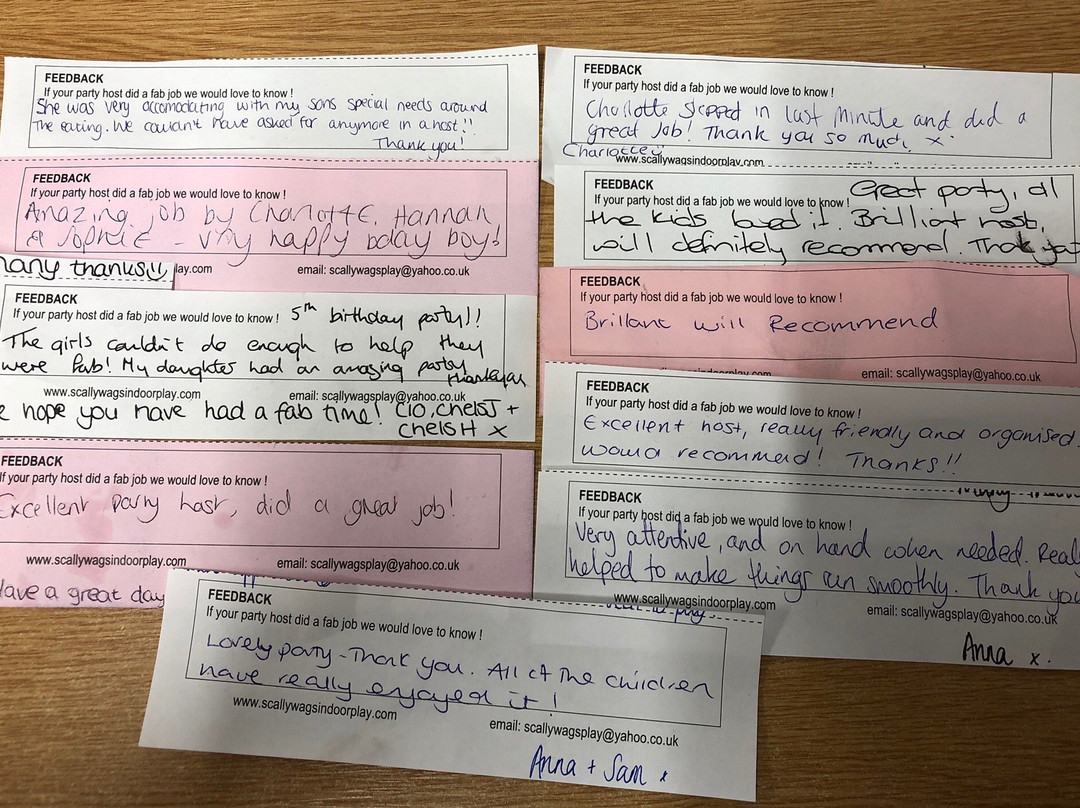 FEEDBACK
If your party host did a fab job we would love to know !
She was very accomodating with my sons special needs around
The eating. We couldn't have asked for anymore in a host!!
Thank you!
FEEDBACK
If your party host did a fab job we would love to know !
Amazing job by Charlotte, Hannah
& Sophie - very happy bday boy!
many thanks
lay.com
email: scallywagsplay@yahoo.co.uk
FEEDBACK
If your party host did a fab job we would love to know ! 5th birthday party!!
The girls couldn't do enough to help they
were fab! My daughter had an amazing party
thankyou
www.scallywagsindoorplay.com
email: scallywagsplay@yahoo.co.uk
e hope you have had a fab time! Clo, ChelsJ +
ChelsH x
FEEDBACK
If your party host did a fab job we would love to know !
Excellent party host, did a great job!
www.scallywagsindoorplay.com
email: scallywagsplay@yahoo.co.uk
Have a great day
FEEDBACK
If your party host did a fab job we would love to know !
Charlotte stepped in last minute and did a
great job! Thank you so much x
www.scallywagsindoorplay.com
FEEDBACK
If your party host did a fab job we would love to know ! Great party, all
the kids loved it. Brilliant host,
will definitely recommend. Thank you
email: scallywagsplay@yahoo.co.uk
FEEDBACK
If your party host did a fab job we would love to know !
Brillant will Recommend
email: scallywagsplay@yahoo.co.uk
FEEDBACK
If your party host did a fab job we would love to know !
Excellent host, really friendly and organised
would recommend! Thanks!!
FEEDBACK
If your party host did a fab job we would love to know !
Very attentive, and on hand when needed. Really
helped to make things run smoothly. Thank you
www.scallywagsindoorplay.com
email: scallywagsplay@yahoo.co.uk
Anna x.
FEEDBACK
If your party host did a fab job we would love to know !
Lovely party - Thank you. All of the children
have really enjoyed it!
www.scallywagsindoorplay.com
email: scallywagsplay@yahoo.co.uk
Anna + Sam x